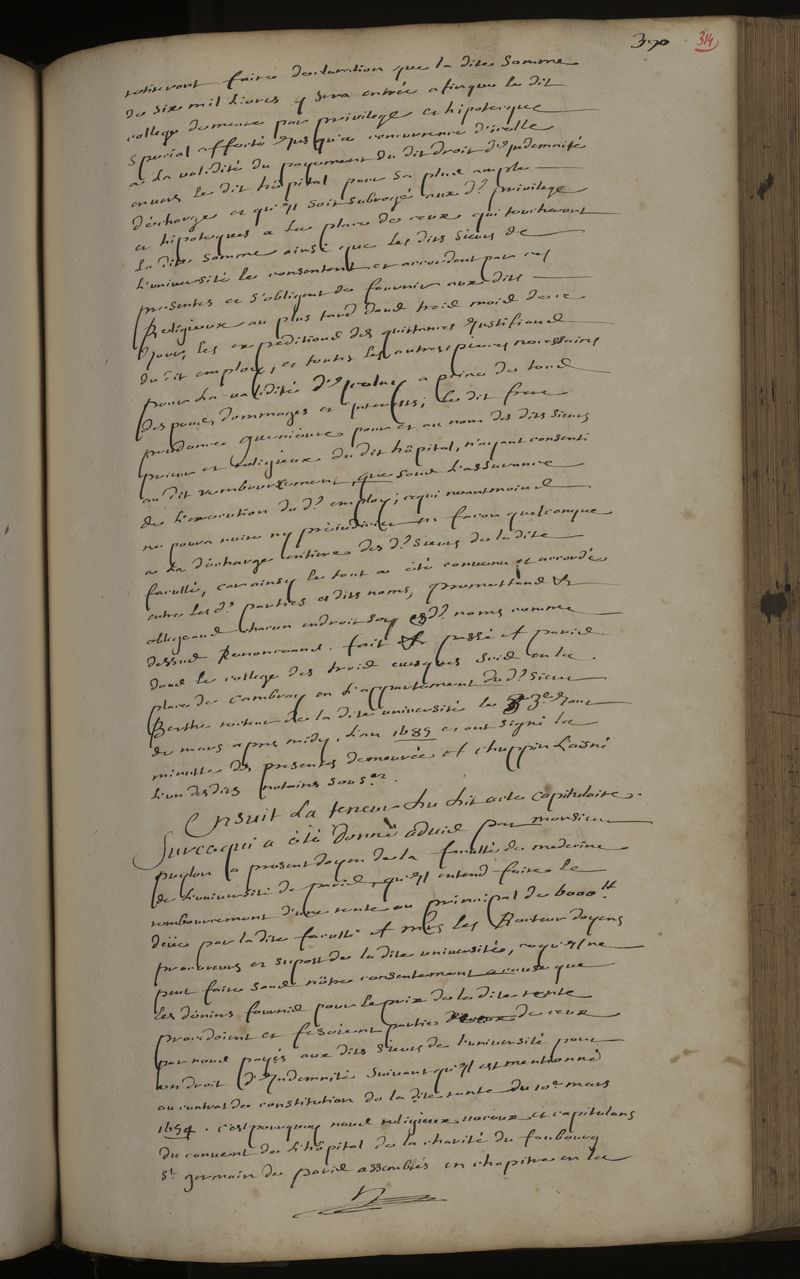 390 314
retireront faire declaration que la dite Somme
de Six mil livres y Sera entrée afinque le dit
college demeure par privilege et hipoteque
Special affecté jusqu'a concurrence d'icelle
a la validité du payement du dit droit d'Indemnité
envers le dit hôpital pour sa plus ample
décharge et qu'il soit subrogé aux d.s privilege
et hipoteques a la place de ceux qui toucheront
la dite Somme ainsi que les dits Sieurs de
l'université le consentent et accordent par ces
presentes et s'obligent de fournir aux dits
Religieux au plus tard dans trois mois de ce
jour, les expeditions des quittances justifians
du dit employ, et toutes les autres pieces necessaires
pour la validité d'iceluy a peine de tous
des pens, dommages et interests; le dit frere
prudence prieur et au nom des dits Sieurs
prieur et religieux du dit hôpital, n'ayant consenti
au dit remboursement, que sous l'assurance
de l'execution du d.t employ; ce qui neantmoins
ne poura nuire ny prejudicier en facon quelconque
a la décharge entiere des d.s Sieurs de la dite
faculté, car ainsy le tout a été convenu et accordé
entre les d.s parties esdits noms, promettans &c
obligeans chacun endroit soy esd.s noms comme
dessus Renonceans. fait & passé a paris
dans le college des trois evesques Scis en la
place de Cambray en l'appartement du d.t Sieur
Berthe recteur de la dite université le 3.e jour
de mars apres midy, l'an 1689 et ont signé la
minutte des presentes demeurée a chuppin l'aisné
l'un desdits notaires sous.ez
Ensuit la teneur du dit acte capitulaire.
Surcequi a été donné advis par monsieur
puylon a present doyen de la faculté de medecine
de l'université de paris, qu'il entend faire le
remboursement d'une rente au principal de 6000tt
deüe par ladite faculté et mrs les Recteur doyens
procureurs et supost de la dite université, ce qu'il ne
peut faire sans nôtre consentement a cause que
les deniers fournis pour le prix de la dite rente
procedoient et fesoient parties de ceux
par nous payés aux dits Sieurs de l'université pour
un droit d'Indemnité suivant qu'il est mentionné
au contrat de constitution de la dite rente du 10.e mars
1654. c'est pourquoy nous religieux vocaux et capitulans
du convent de l'hôpital de la charité du faubourg
St germain de paris assemblés en chapitre en la